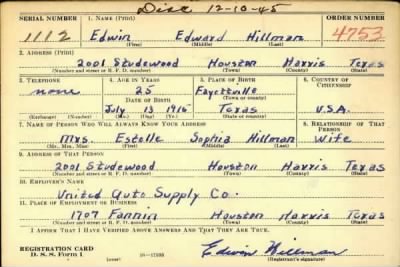 Disc 12-10-45
SERIAL NUMBER 1. NAME (Print) ORDER NUMBER
1112 Edwin Edward Hillman 4753
(First) (Middle) (Last)
2. ADDRESS (Print)
2001 Studewood Houston Harris Texas
(Number and street or R. F. D. number) (Town) (County) (State)
3. TELEPHONE 4. AGE IN YEARS 5. PLACE OF BIRTH 6. COUNTRY OF CITIZENSHIP
none 25 Fayetteville
DATE OF BIRTH (Town or county)
July 13 1915 Texas U.S.A.
(Exchange) (Number) (Mo.) (Day) (Yr.) (State or country)
7. NAME OF PERSON WHO WILL ALWAYS KNOW YOUR ADDRESS 8. RELATIONSHIP OF THAT PERSON
Mrs. Estelle Sophia Hillman Wife
(Mr., Mrs., Miss) (First) (Middle) (Last)
9. ADDRESS OF THAT PERSON
2001 Studewood Houston Harris Texas
(Number and street or R. F. D. number) (Town) (County) (State)
10. EMPLOYER'S NAME
United Auto Supply Co.
11. PLACE OF EMPLOYMENT OR BUSINESS
1707 Fannin Houston Harris Texas
(Number and street or R. F. D. number) (Town) (County) (State)
I AFFIRM THAT I HAVE VERIFIED ABOVE ANSWERS AND THAT THEY ARE TRUE.
REGISTRATION CARD
D. S. S. Form 1 Edwin Hillman
(Registrant's signature)